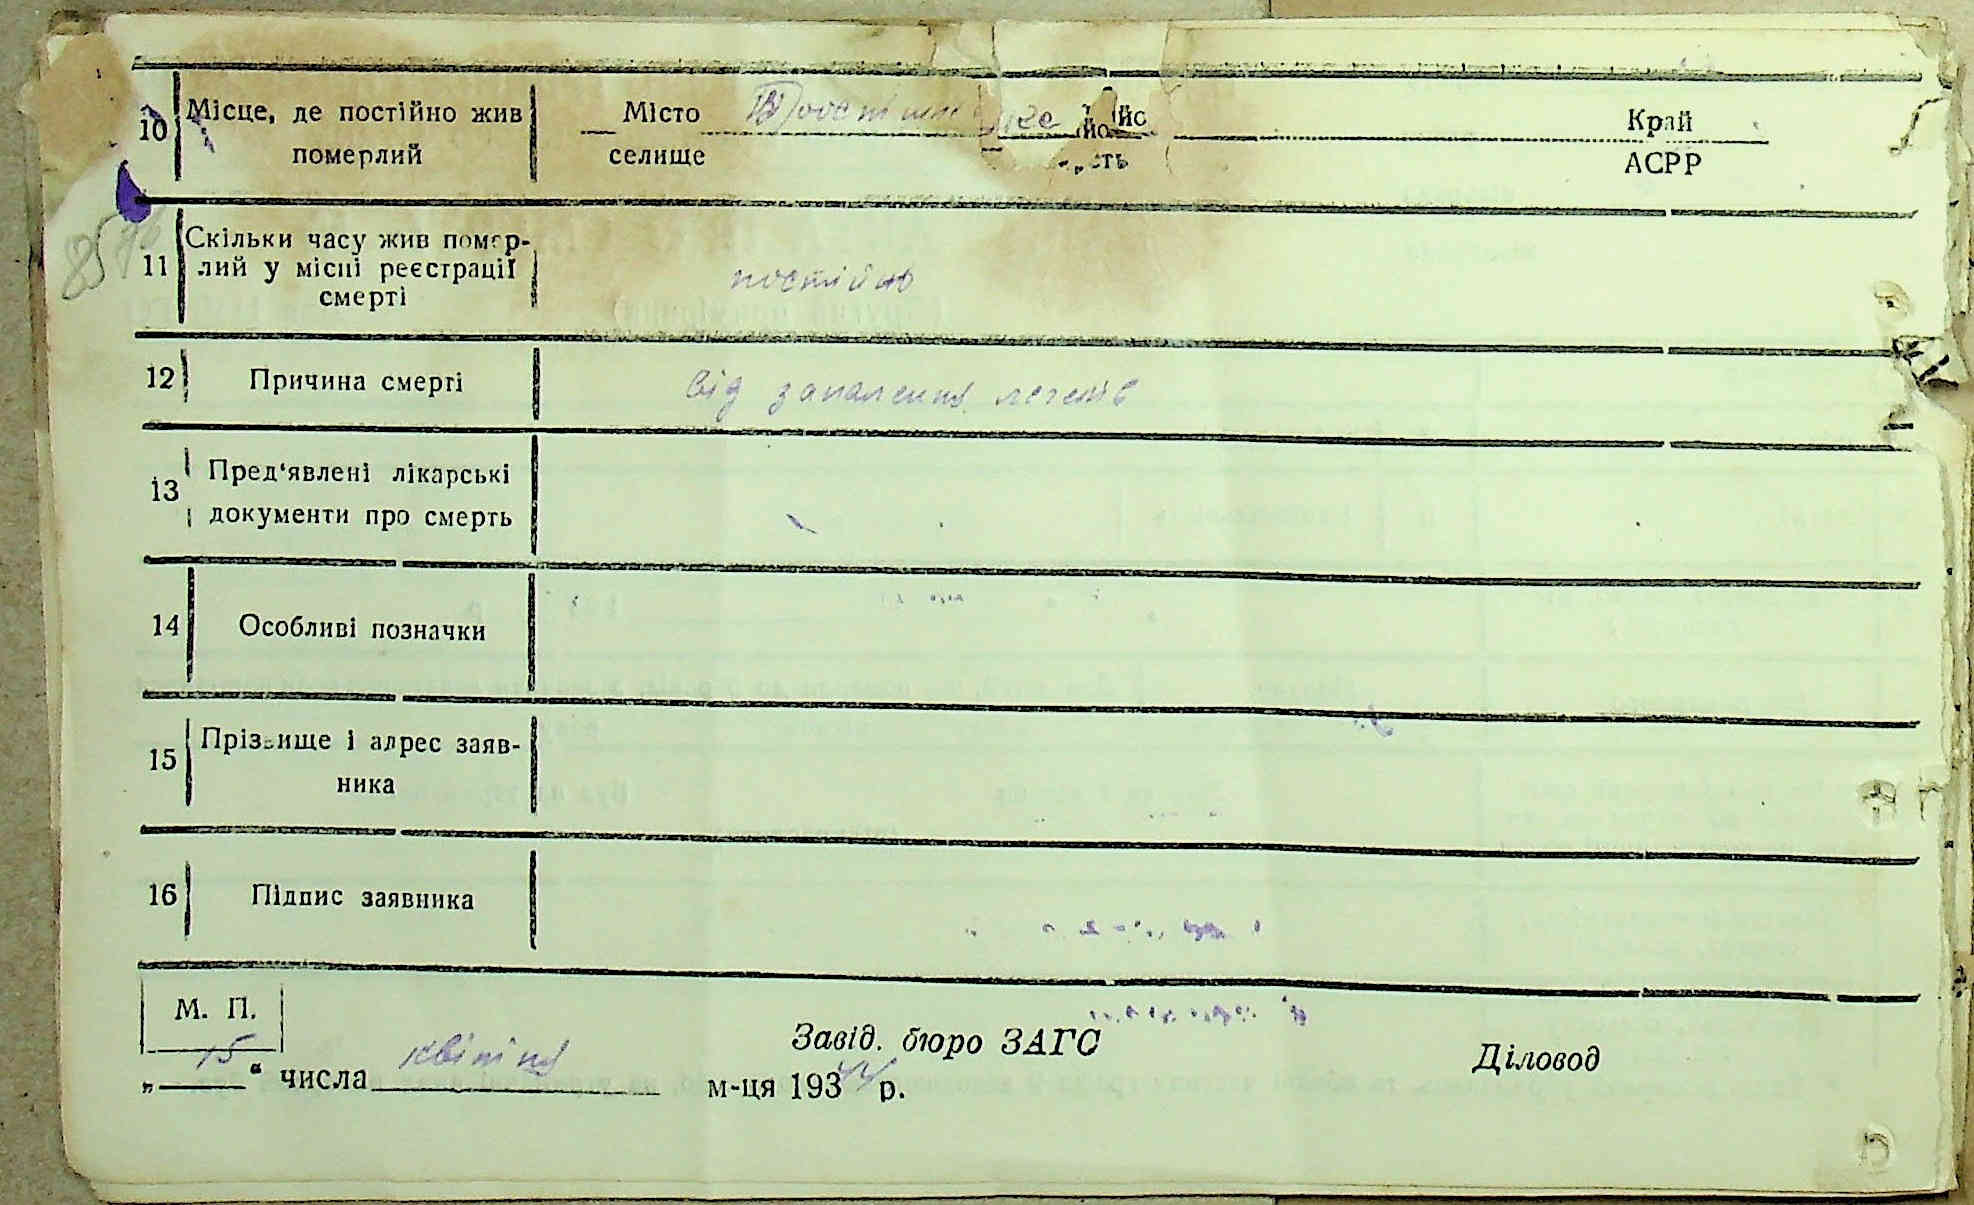 10 Місце, де постійно жив померлий
Місто
селище
Край
АСРР
11 Скільки часу жив помер-
лий у місці реєстрації
смерті
постійно
12 Причина смерті
від запалення легенів
13 Пред'явлені лікарські
документи про смерть
14 Особливі позначки
15 Прізвище і адрес заяв-
ника
16 Підпис заявника
М. П.
Завід. бюро ЗАГС
Діловод
„ 15 “ числа квітня м-ця 193 р.